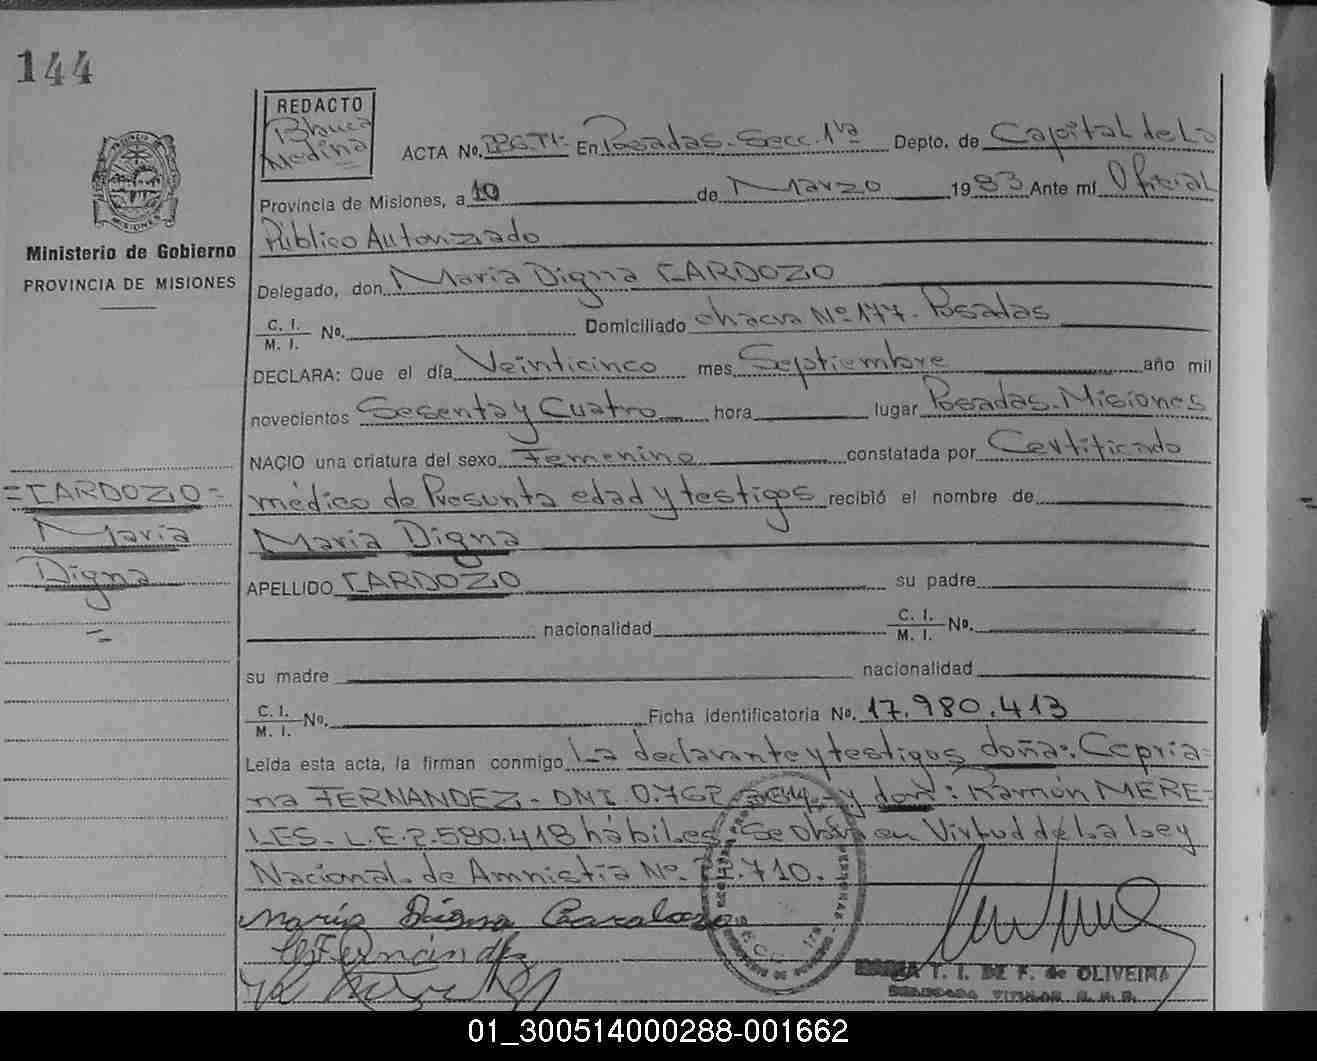 144
REDACTO
Blanca
Medina
ACTA No. En Posadas. Secc. 1ra Depto. de Capital de La
Provincia de Misiones, a 10 de Marzo 1983 Ante mí Oficial
Público Autorizado
PROVINCIA
MISIONES
Ministerio de Gobierno
PROVINCIA DE MISIONES
Delegado, don María Digna CARDOZO
C. I.
M. I. No. Domiciliado chacra Nº 177. Posadas
DECLARA: Que el día Veinticinco mes Septiembre año mil
novecientos Sesenta y Cuatro hora lugar Posadas. Misiones
NACIO una criatura del sexo Femenino constatada por Certificado
médico de Presunta edad y testigos recibió el nombre de
María Digna
=CARDOZO=
María
Digna
=
APELLIDO CARDOZO su padre
nacionalidad C. I.
M. I. No.
su madre nacionalidad
C. I.
M. I. No. Ficha identificatoria No. 17.980.413
Leída esta acta, la firman conmigo La declarante y testigos doña: Cipria=
na FERNANDEZ - DNI y don: Ramón MERE=
LES - L.E. hábiles Se obra en Virtud de La Ley
Nacional de Amnistía Nº .710.
María Digna Cardozo
C Fernández
T. I. DE F. de OLIVEIRA
DELEGADA TITULAR
01_300514000288-001662